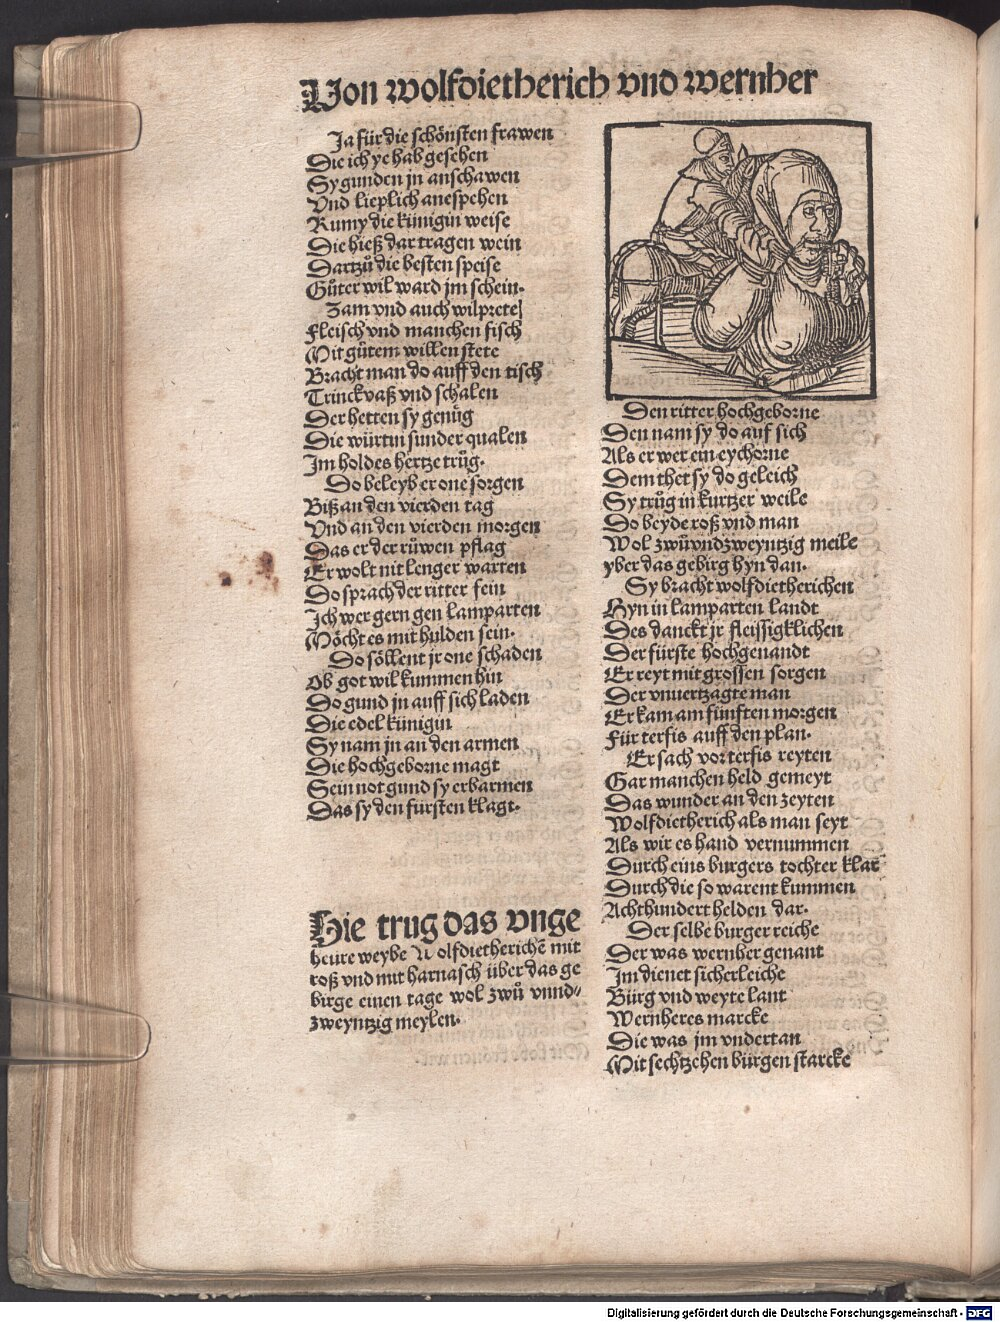 Von wolfdietherich vnd wernher
Ja für die schönsten frawen
Die ich ye hab gesehen
Sy gunden jn anschawen
Vnd lieplich anespehen
Rumy die künigin weise
Die hieß dar tragen wein
Dartzů die besten speise
Gůter wil ward jm schein.
Zam vnd auch wilprete
Fleisch vnd manchen fisch
Mit gůtem willen stete
Bracht man do auff den tisch
Trinckvaß vnd schalen
Der hetten sy genůg
Die würtin sunder qualen
Im holdes hertze trůg.
Do beleyb er one sorgen
Biß an den vierden tag
Vnd an den vierden morgen
Das er der rüwen pflag
Er wolt nit lenger warten
Do sprach der ritter fein
Ich wer gern gen lamparten
Möcht es mit hulden sein.
Do söllent jr one schaden
Ob got wil kummen hin
Do gund jn auff sich laden
Die edel künigin
Sy nam jn an den armen
Die hochgeborne magt
Sein not gund sy erbarmen
Das sy den fürsten klagt.
Hie trug das vnge
heure weybe Wolfdietherichē mit
roß vnd mit harnasch über das ge
birge einen tage wol zwů vnnd⸗
zweyntzig meylen.
Den ritter hochgeborne
Den nam sy do auf sich
Als er wer ein eychorne
Dem thet sy do geleich
Sy trůg in kurtzer weile
Do beyde roß vnd man
Wol zwůvndzweyntzig meile
yber das gebirg hyn dan.
Sy bracht wolfdietherichen
Hyn in lamparten landt
Des danckt jr fleissigklichen
Der fürste hochgenandt
Er reyt mit grossen sorgen
Der vnuertzagte man
Er kam am fünften morgen
Für terfis auff den plan.
Er sach vor terfis reyten
Gar manchen held gemeyt
Das wunder an den zeyten
Wolfdietherich als man seyt
Als wir es hand vernummen
Durch eins burgers tochter klar
Durch die so warent kummen
Achthundert helden dar.
Der selbe burger reiche
Der was wernher genant
Im dienet sicherleiche
Bürg vnd weyte lant
Wernheres marcke
Die was jm vndertan
Mit sechtzehen bürgen starcke
Digitalisierung gefördert durch die Deutsche Forschungsgemeinschaft - DFG